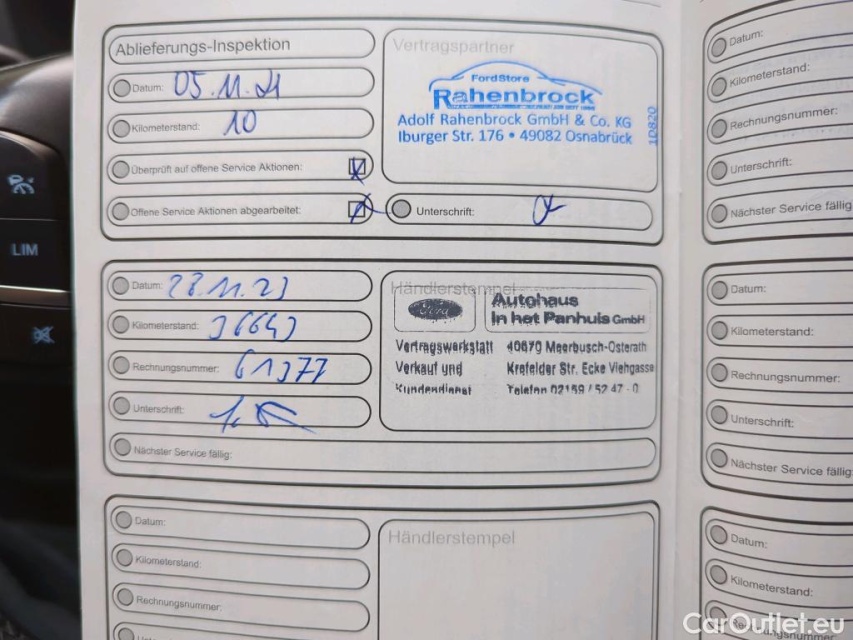 Ablieferungs-Inspektion
Datum: 05.11.21
Kilometerstand: 10
Überprüft auf offene Service Aktionen:
Offene Service Aktionen abgearbeitet:
Vertragspartner
FordStore
Rahenbrock
Adolf Rahenbrock GmbH & Co. KG
Iburger Str. 176 • 49082 Osnabrück
10820
Unterschrift:
Datum: 28.11.23
Kilometerstand: 36643
Rechnungsnummer: 61377
Unterschrift:
Nächster Service fällig:
Händlerstempel
Ford
Autohaus
In het Panhuis GmbH
Vertragswerkstatt 40670 Meerbusch-Osterath
Verkauf und Krefelder Str. Ecke Viehgasse
Kundendienst Telefon 02159 / 52 47 - 0
Datum:
Kilometerstand:
Rechnungsnummer:
Händlerstempel
Datum:
Kilometerstand:
Rechnungsnummer:
Unterschrift:
Nächster Service fällig
Datum:
Kilometerstand:
Rechnungsnummer:
Unterschrift:
Nächster Service fällig
Datum:
Kilometerstand:
Rechnungsnummer:
LIM
CarOutlet.eu